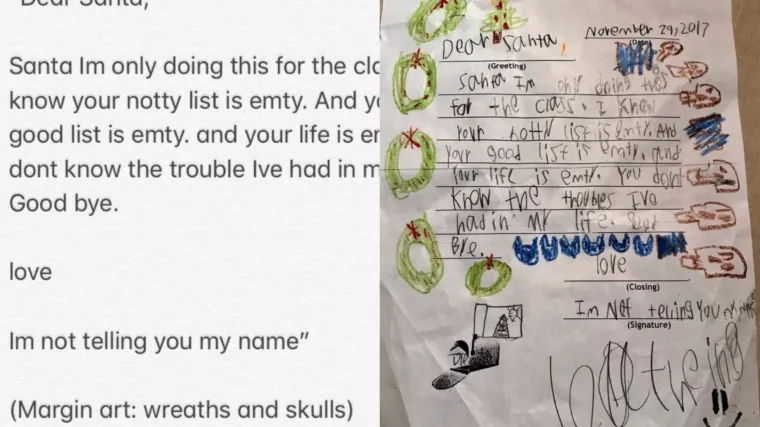 "Dear Santa,
Santa Im only doing this for the
know your notty list is emty. And
good list is emty. and your life is
dont know the trouble Ive had in
Good bye.
love
Im not telling you my name"
(Margin art: wreaths and skulls)
November 29, 2017
(Date)
Dear Santa,
(Greeting)
Santa Im only doing this
for the class. I know
Your notty list is emty. And
Your good list is emty. and
Your life is emty. You dont
know the troubles Ive
had in my life. Good
Bye.
love
(Closing)
Im Not telling You my
(Signature)